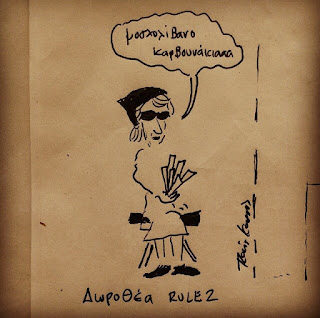 μοσχολίβανο
καρβουνάκιααα
Δωροθέα RULEZ